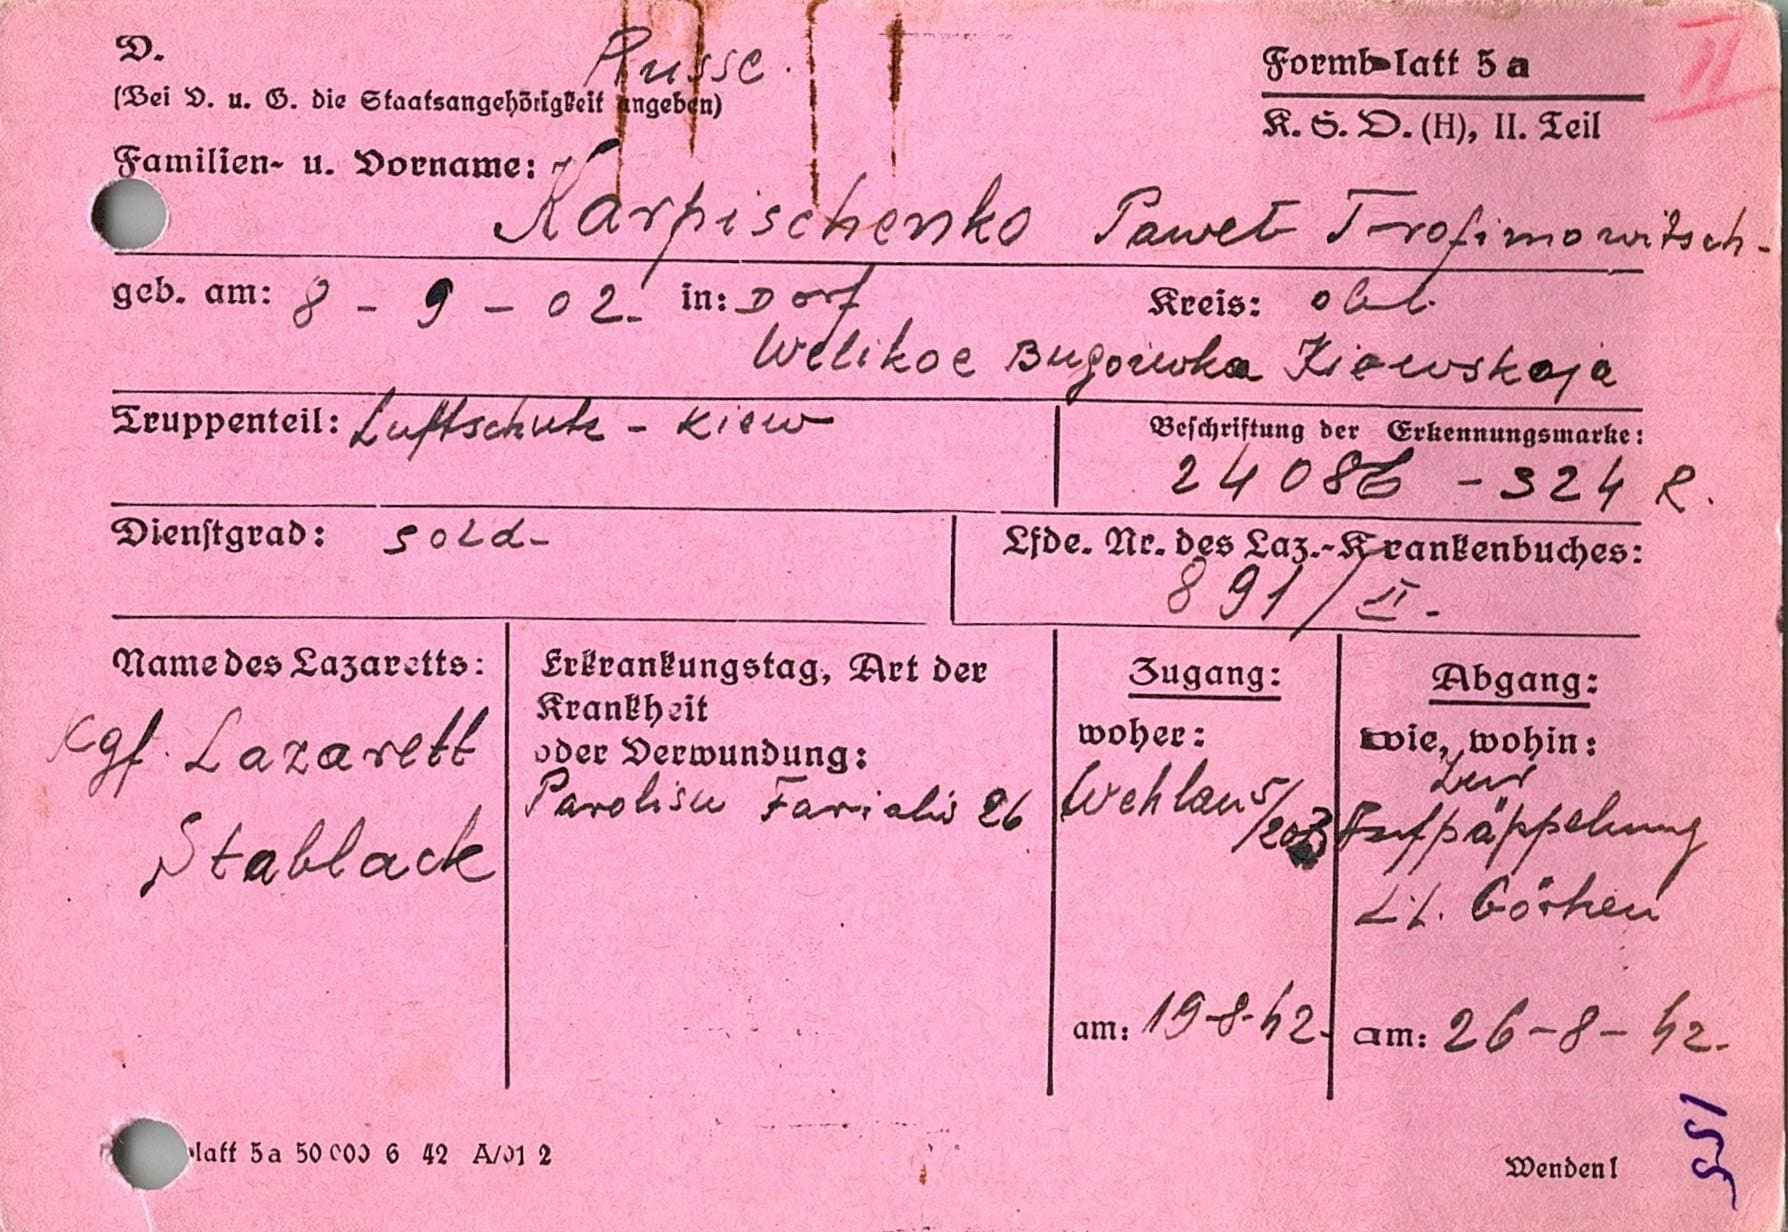 D.
Russe.
(Bei V. u. G. die Staatsangehörigkeit angeben)
Formblatt 5a
K. S. D. (H), II. Teil
II
Familien- u. Vorname:
Karpischenko Pawel Trofimowitsch-
geb. am: 8-9-02. in: Dorf Kreis: obl.
Welikoe Bugoiewka Kiewskaja
Truppenteil: Luftschutz - Kiew
Beschriftung der Erkennungsmarke:
24086 - 324 R.
Dienstgrad: Sold-
Lfde. Nr. des Laz.-Krankenbuches:
891/II.
Name des Lazaretts:
Kgf. Lazarett
Stablack
Erkrankungstag, Art der
Krankheit
oder Verwundung:
26
Zugang:
woher:
Wehlau
am: 19-8-42.
Abgang:
wie, wohin:
zur
Aufpäppelung
Görken
am: 26-8-42.
latt 5a 50 000 6 42 A/01 2
Wenden!
551